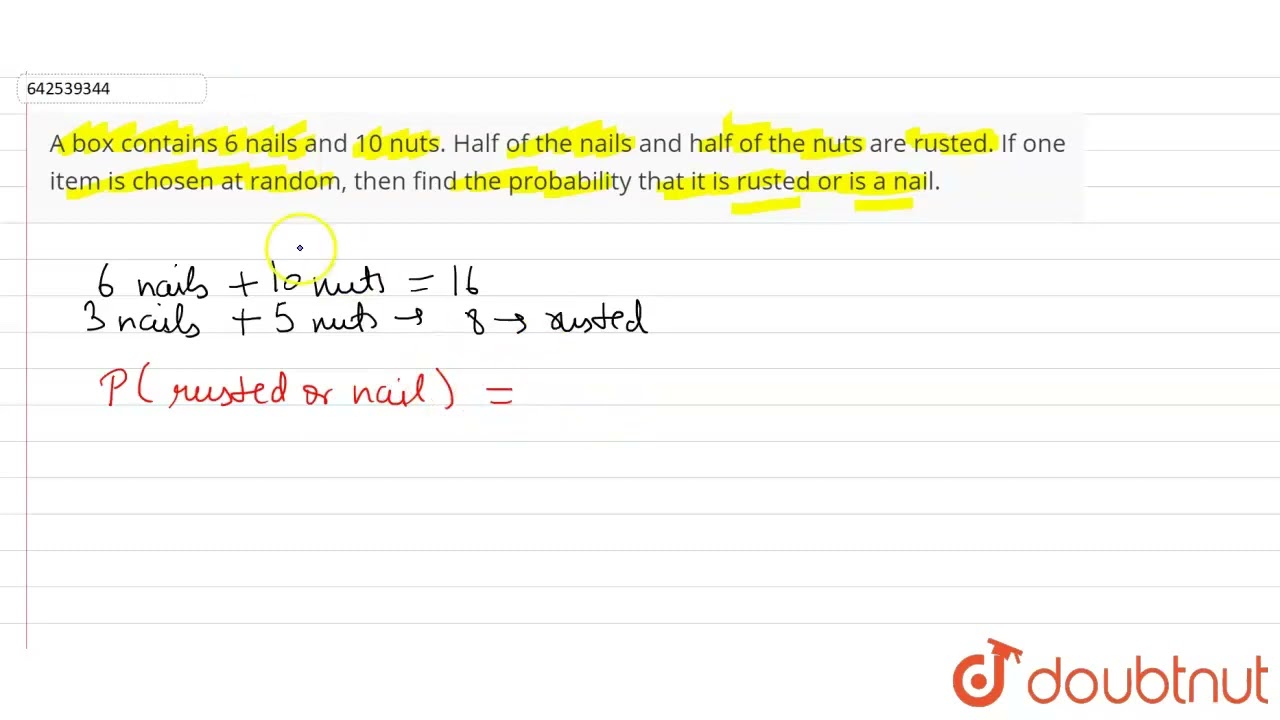 642539344
A box contains 6 nails and 10 nuts. Half of the nails and half of the nuts are rusted. If one
item is chosen at random, then find the probability that it is rusted or is a nail.
6 nails + 10 nuts = 16
3 nails + 5 nuts → 8 → rusted
P( rusted or nail) =
doubtnut